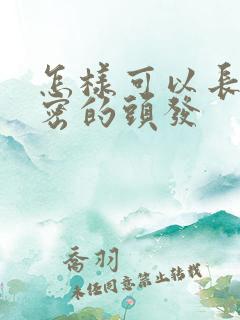 怎樣可以長
密的頭發
喬羽
未任同意禁止转载